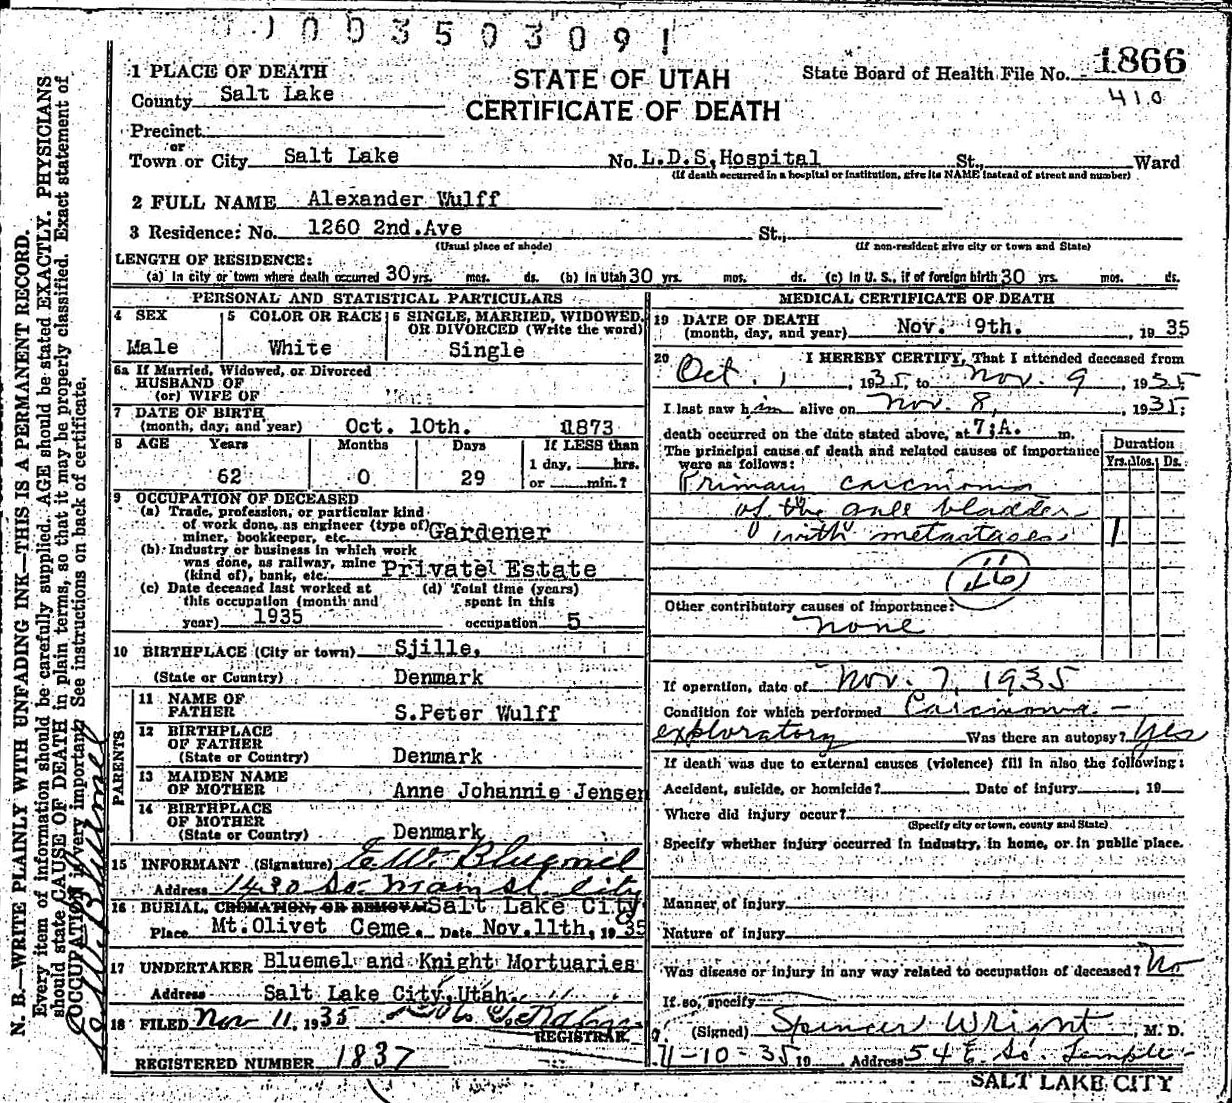 003503091
1 PLACE OF DEATH
STATE OF UTAH
CERTIFICATE OF DEATH
State Board of Health File No. 1866
410
County Salt Lake
Precinct
or
Town or City Salt Lake No. L.D.S. Hospital St., Ward
(If death occurred in a hospital or institution, give its NAME instead of street and number)
2 FULL NAME Alexander Wulff
3 Residence: No. 1260 2nd. Ave St.,
(Usual place of abode) (If non-resident give city or town and State)
LENGTH OF RESIDENCE:
(a) In city or town where death occurred 30 yrs. mos. ds. (b) In Utah 30 yrs. mos. ds. (c) In U. S., if of foreign birth 30 yrs. mos. ds.
PERSONAL AND STATISTICAL PARTICULARS
4 SEX Male
5 COLOR OR RACE White
6 SINGLE, MARRIED, WIDOWED, OR DIVORCED (Write the word) Single
6a If Married, Widowed, or Divorced
HUSBAND OF
(or) WIFE OF
7 DATE OF BIRTH
(month, day, and year) Oct. 10th. 1873
8 AGE Years Months Days If LESS than
62 0 29 1 day, hrs.
or min.?
9 OCCUPATION OF DECEASED
(a) Trade, profession, or particular kind
of work done, as engineer (type of)
miner, bookkeeper, etc. Gardener
(b) Industry or business in which work
was done, as railway, mine
(kind of), bank, etc. Private Estate
(c) Date deceased last worked at
this occupation (month and
year) 1935
(d) Total time (years)
spent in this
occupation 5
10 BIRTHPLACE (City or town) Sjille,
(State or Country) Denmark
PARENTS
11 NAME OF
FATHER S. Peter Wulff
12 BIRTHPLACE
OF FATHER
(State or Country) Denmark
13 MAIDEN NAME
OF MOTHER Anne Johannie Jensen
14 BIRTHPLACE
OF MOTHER
(State or Country) Denmark
15 INFORMANT (Signature) E W Bluemel
Address 1430 So. Main St. City
16 BURIAL, CREMATION, OR REMOVAL Salt Lake City
Place Mt. Olivet Ceme. Date Nov. 11th, 1935
17 UNDERTAKER Bluemel and Knight Mortuaries
Address Salt Lake City, Utah.
18 FILED Nov 11, 1935
REGISTRAR
REGISTERED NUMBER 1837
MEDICAL CERTIFICATE OF DEATH
19 DATE OF DEATH
(month, day, and year) Nov. 9th. , 1935
20 I HEREBY CERTIFY, That I attended deceased from
Oct. 1 , 1935, to Nov. 9 , 1935
I last saw him alive on Nov. 8, , 1935;
death occurred on the date stated above, at 7: A. m.
The principal cause of death and related causes of importance
were as follows:
Duration
Yrs. Mos. Ds.
Primary carcinoma
of the gall bladder
with metastases 1
46
Other contributory causes of importance:
none
If operation, date of Nov. 7, 1935
Condition for which performed Carcinoma -
exploratory Was there an autopsy? Yes
If death was due to external causes (violence) fill in also the following:
Accident, suicide, or homicide? Date of injury , 19
Where did injury occur?
(Specify city or town, county and State)
Specify whether injury occurred in industry, in home, or in public place.
Manner of injury
Nature of injury
Was disease or injury in any way related to occupation of deceased? No
If so, specify
(Signed) Spencer Wright M. D.
11-10-35 19 Address 54 E. So. Temple -
SALT LAKE CITY
N. B.—WRITE PLAINLY WITH UNFADING INK—THIS IS A PERMANENT RECORD.
Every item of information should be carefully supplied. AGE should be stated EXACTLY. PHYSICIANS
should state CAUSE OF DEATH in plain terms, so that it may be properly classified. Exact statement of
OCCUPATION is very important. See instructions on back of certificate.